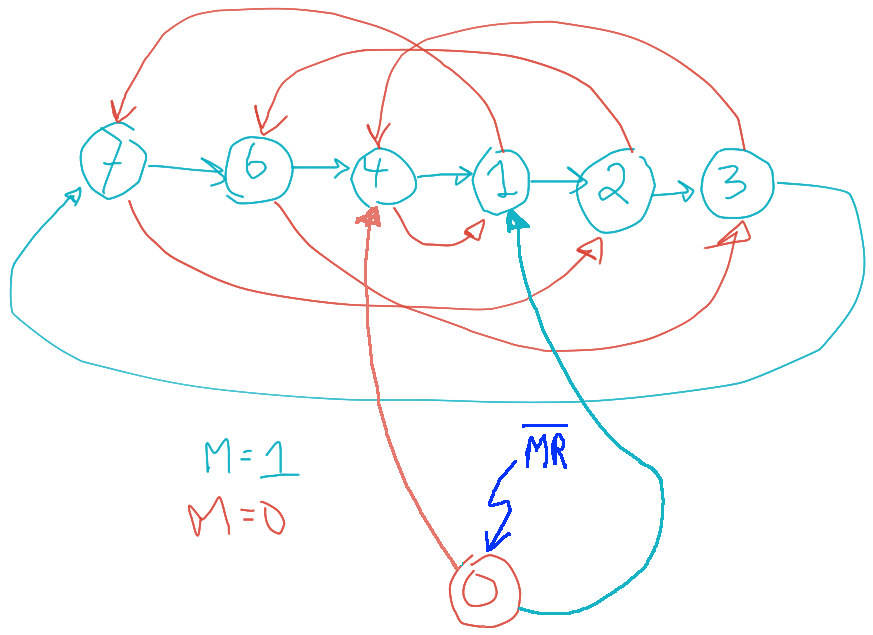 7 6 4 1 2 3
M̅R̅
M=1
M=0
0